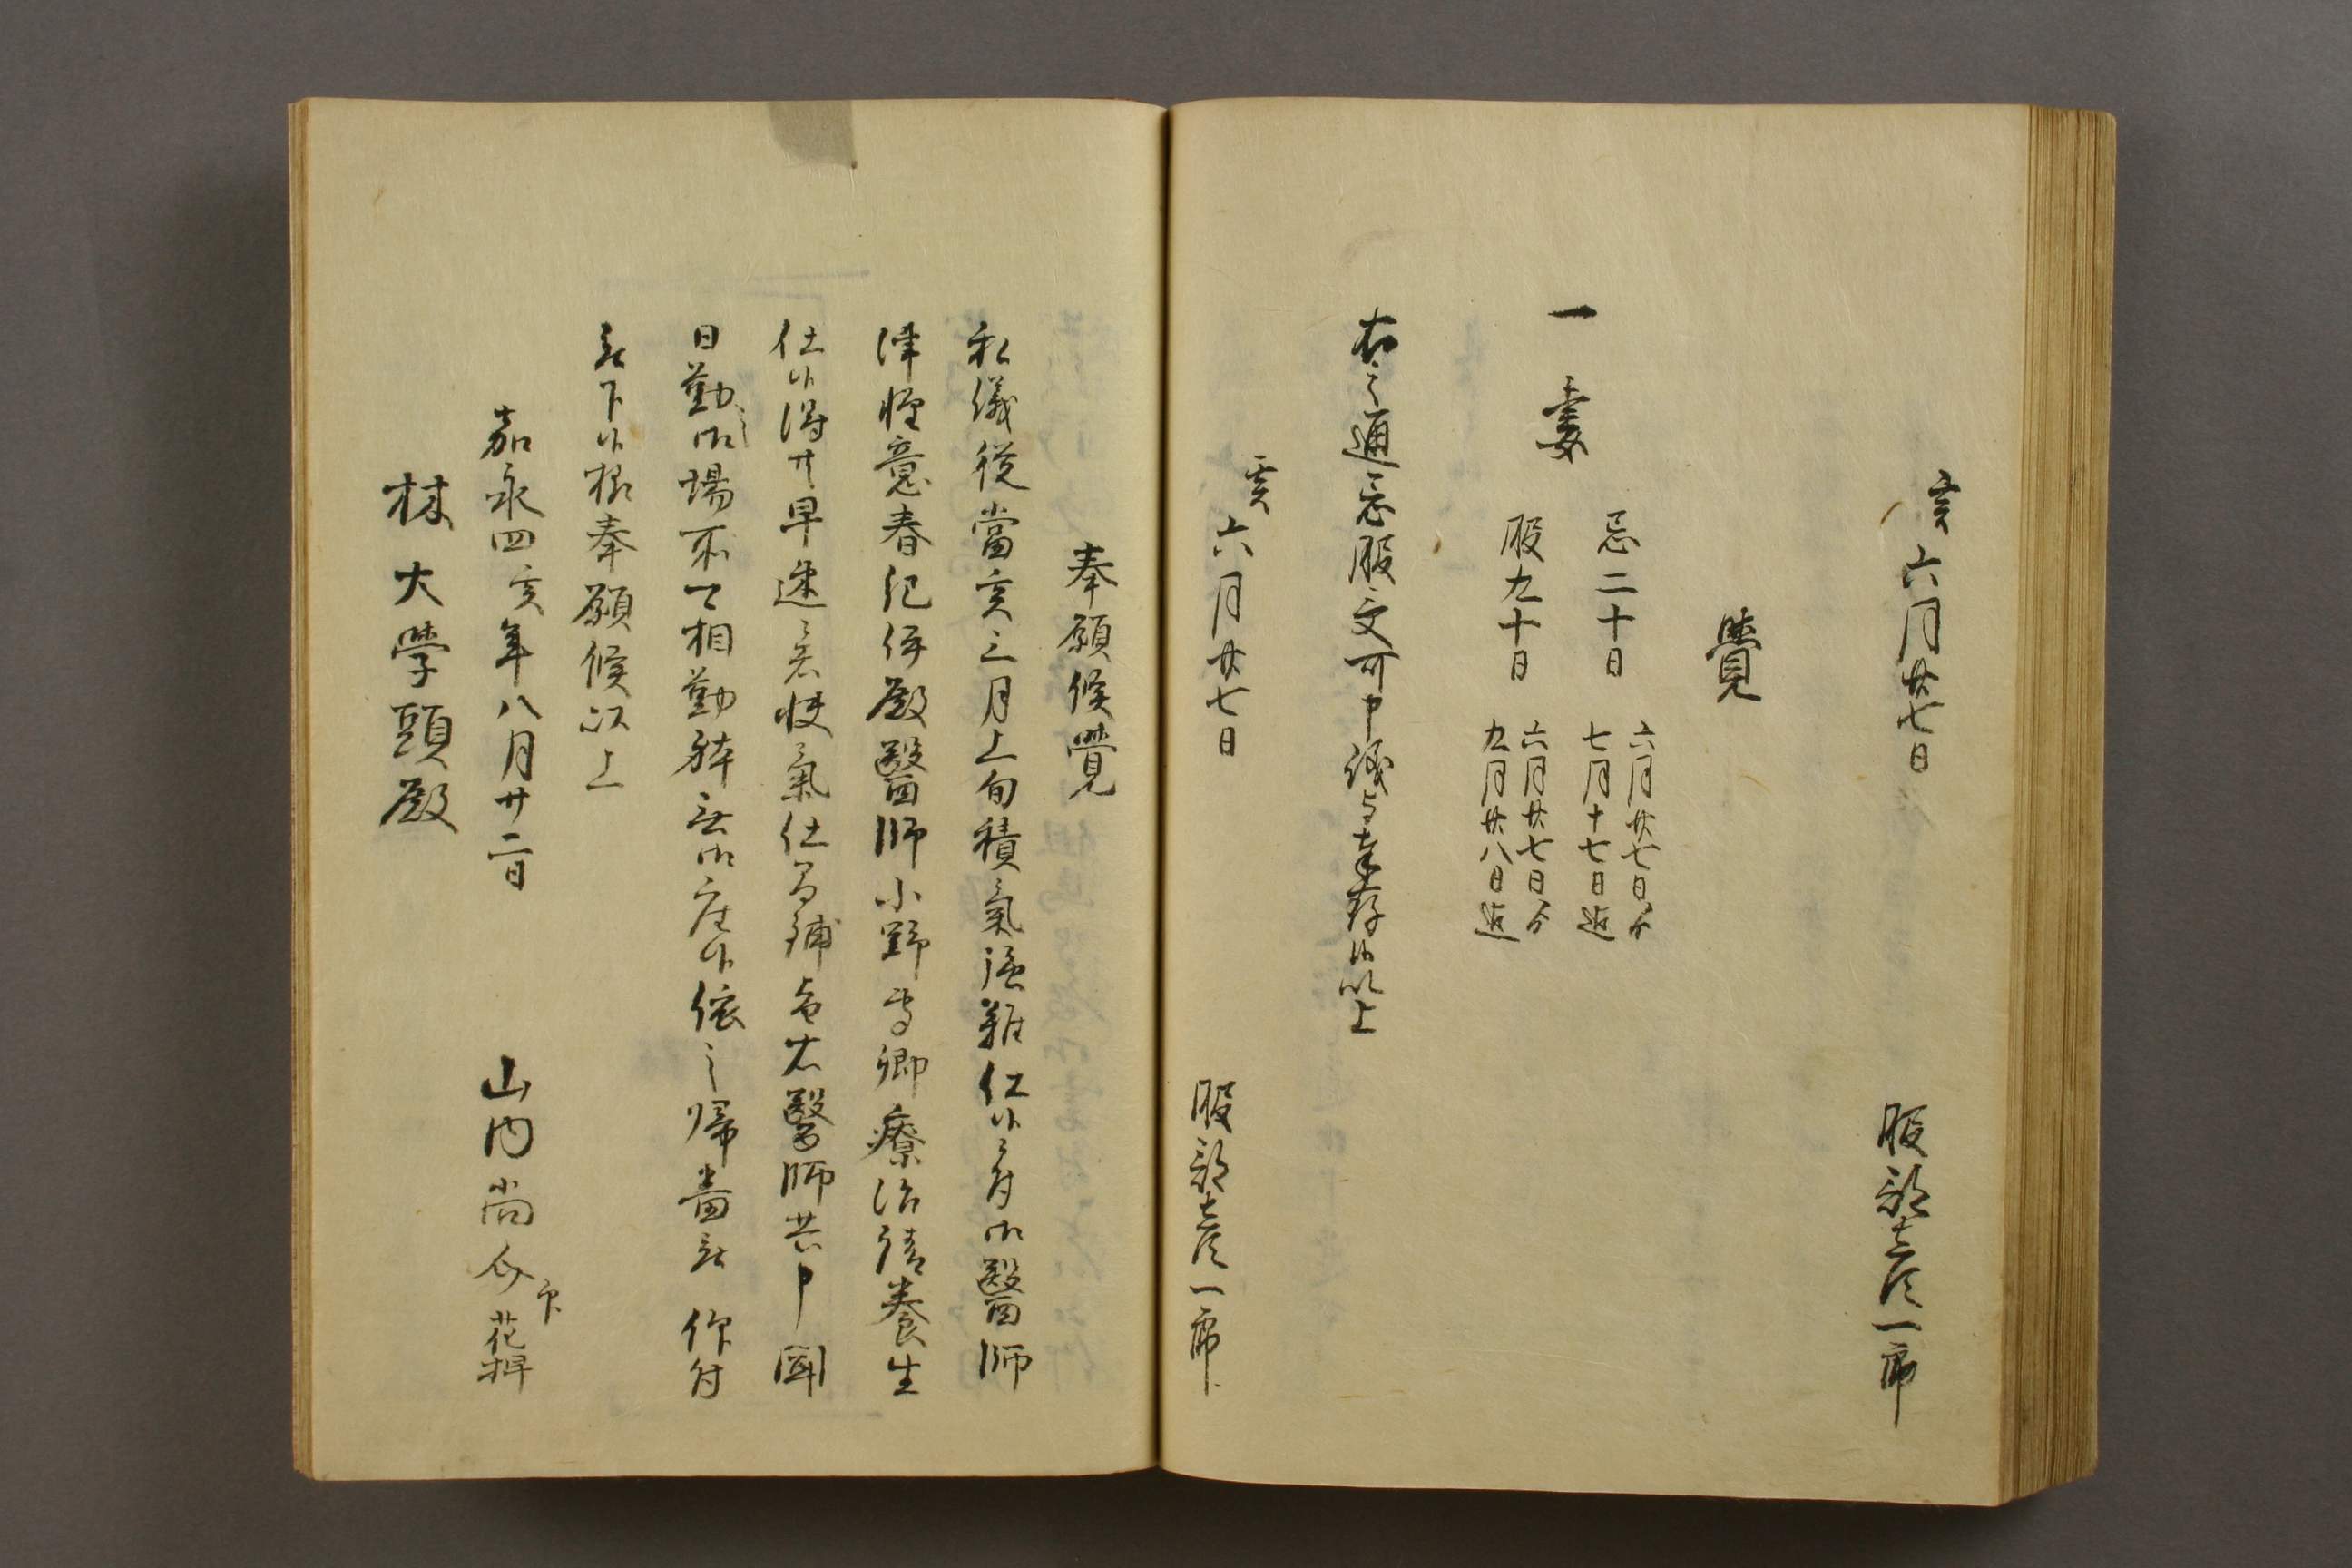 亥六月廿七日
服部彦一郎
覺
一 妻
忌二十日
六月廿七日ゟ
七月十七日迄
服九十日
六月廿七日ゟ
九月廿八日迄
右之通忌服受可申議与奉存候以上
亥六月廿七日
服部彦一郎
奉願候覺
私儀從當亥三月上旬積氣強難仕候ニ付御醫師
津輕意春紀伊殿醫師小野
卿療治請養生
仕候得共早速
氣仕
右醫師共申聞
日勤之御場所可相勤躰無御座候依之帰番被 仰付
被下候様奉願候以上
嘉永四亥年八月廿二日
山内尚介 印 花押
林大学頭殿